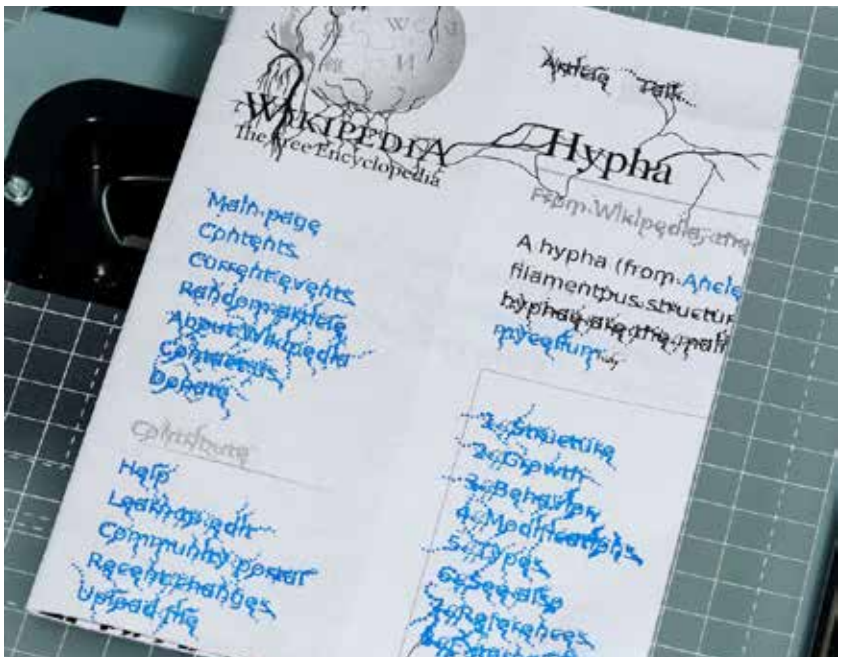 W
И
WIKIPEDIA
The Free Encyclopedia
Main page
Contents
Current events
Random article
About Wikipedia
Contact us
Donate
Contribute
Help
Learn to edit
Community portal
Recent changes
Upload file
Article Talk
Hypha
From Wikipedia, the
A hypha (from Ancie
filamentous structur
hyphae are the main
mycelium
1. Structure
2. Growth
3. Behavior
4. Modifications
5. Types
6. See also
7. References
8. External